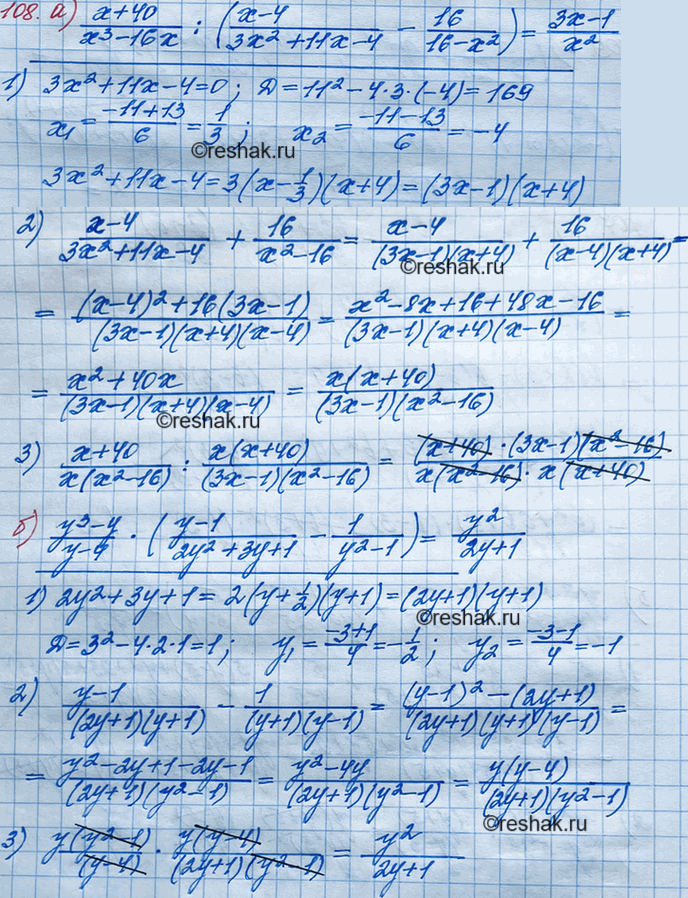 108. а) (x+40)/(x³-16x) : ((x-4)/(3x²+11x-4) - 16/(16-x²)) = (3x-1)/x²
1) 3x²+11x-4=0; Д=11²-4·3·(-4)=169
x₁=(-11+13)/6=1/3; x₂=(-11-13)/6=-4
©reshak.ru
3x²+11x-4=3(x-1/3)(x+4)=(3x-1)(x+4)
2) (x-4)/(3x²+11x-4) + 16/(x²-16) = (x-4)/((3x-1)(x+4)) + 16/((x-4)(x+4)) =
©reshak.ru
= ((x-4)²+16(3x-1))/((3x-1)(x+4)(x-4)) = (x²-8x+16+48x-16)/((3x-1)(x+4)(x-4)) =
= (x²+40x)/((3x-1)(x+4)(x-4)) = x(x+40)/((3x-1)(x²-16))
©reshak.ru
3) (x+40)/(x(x²-16)) : x(x+40)/((3x-1)(x²-16)) = ((x+40)·(3x-1)(x²-16))/(x(x²-16)·x(x+40))
б) (y³-y)/(y-4) · ((y-1)/(2y²+3y+1) - 1/(y²-1)) = y²/(2y+1)
1) 2y²+3y+1=2(y+1/2)(y+1)=(2y+1)(y+1)
©reshak.ru
Д=3²-4·2·1=1; y₁=(-3+1)/4=-1/2; y₂=(-3-1)/4=-1
2) (y-1)/((2y+1)(y+1)) - 1/((y+1)(y-1)) = ((y-1)²-(2y+1))/((2y+1)(y+1)(y-1)) =
= (y²-2y+1-2y-1)/((2y+1)(y²-1)) = (y²-4y)/((2y+1)(y²-1)) = y(y-4)/((2y+1)(y²-1))
©reshak.ru
3) y(y²-1)/(y-4) · y(y-4)/((2y+1)(y²-1)) = y²/(2y+1)